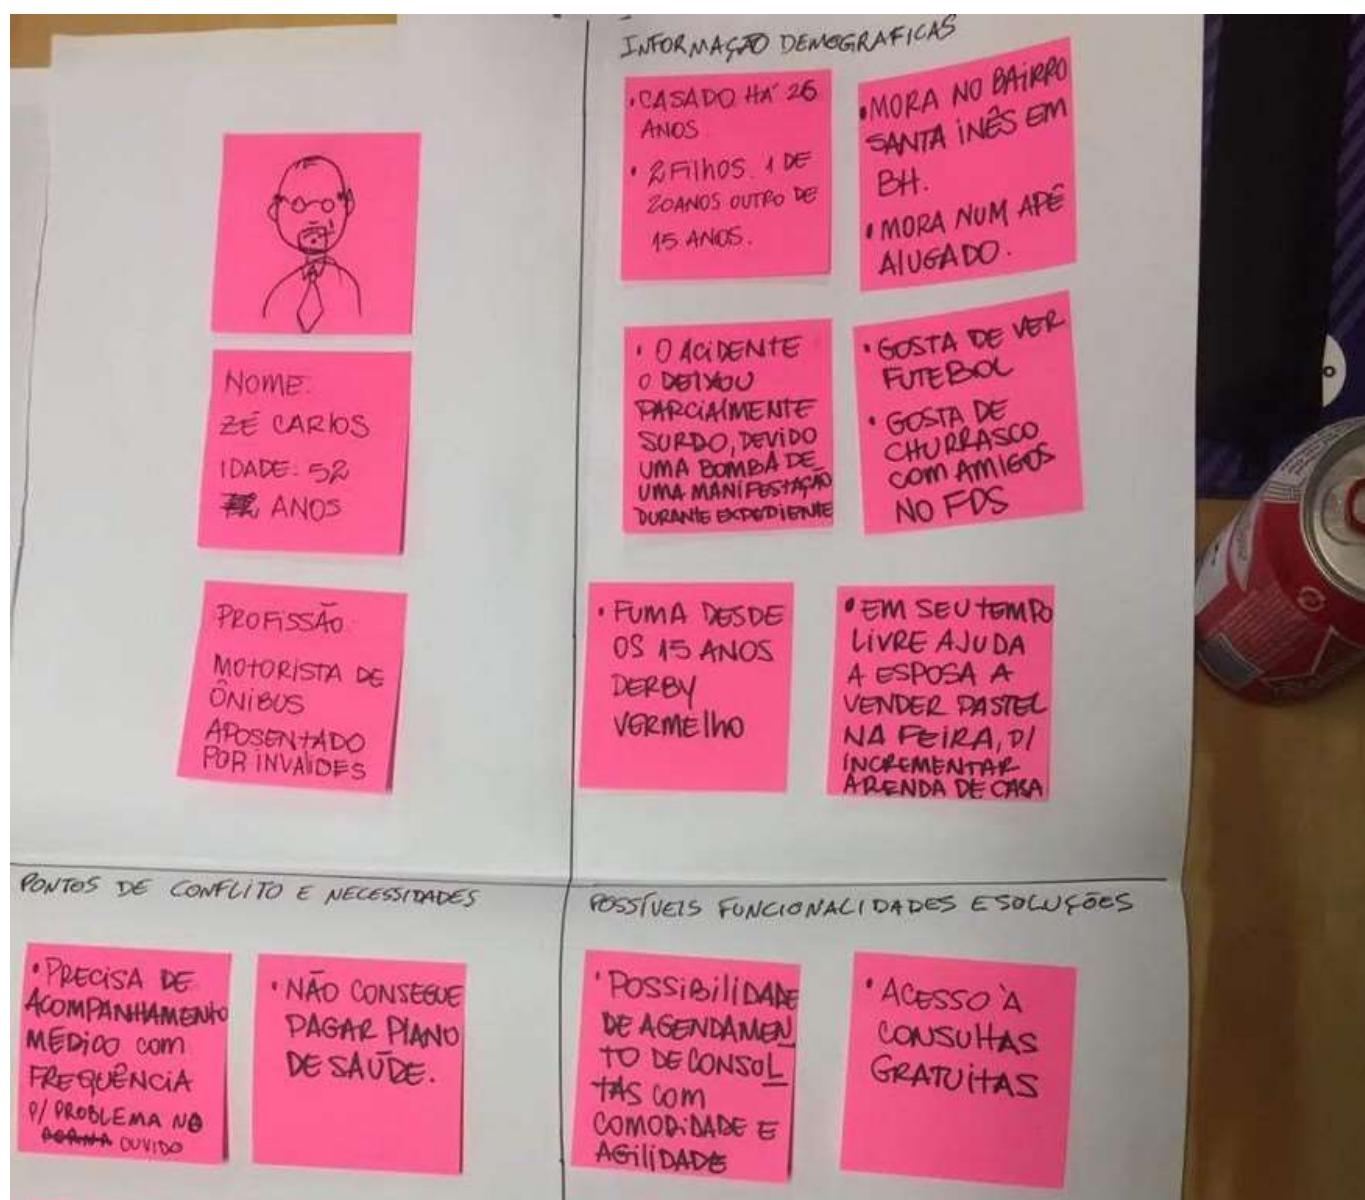 NOME:
ZÉ CARLOS
IDADE: 52
ANOS
PROFISSÃO:
MOTORISTA DE
ÔNIBUS
APOSENTADO
POR INVALIDES
INFORMAÇÃO DEMOGRAFICAS
• CASADO HÁ 26
ANOS.
• 2 FILHOS. 1 DE
20 ANOS OUTRO DE
15 ANOS.
• MORA NO BAIRRO
SANTA INÊS EM
BH.
• MORA NUM APÊ
ALUGADO.
• O ACIDENTE
O DEIXOU
PARCIALMENTE
SURDO, DEVIDO
UMA BOMBA DE
UMA MANIFESTAÇÃO
DURANTE EXPEDIENTE
• GOSTA DE VER
FUTEBOL
• GOSTA DE
CHURRASCO
COM AMIGOS
NO FDS
• FUMA DESDE
OS 15 ANOS
DERBY
VERMELHO
• EM SEU TEMPO
LIVRE AJUDA
A ESPOSA A
VENDER PASTEL
NA FEIRA, P/
INCREMENTAR
A RENDA DE CASA
PONTOS DE CONFLITO E NECESSIDADES
• PRECISA DE
ACOMPANHAMENTO
MÉDICO COM
FREQUÊNCIA
P/ PROBLEMA NO
OUVIDO
• NÃO CONSEGUE
PAGAR PLANO
DE SAÚDE.
POSSÍVEIS FUNCIONALIDADES E SOLUÇÕES
• POSSIBILIDADE
DE AGENDAMEN
TO DE CONSOL
TAS COM
COMODIDADE E
AGILIDADE
• ACESSO À
CONSULTAS
GRATUITAS